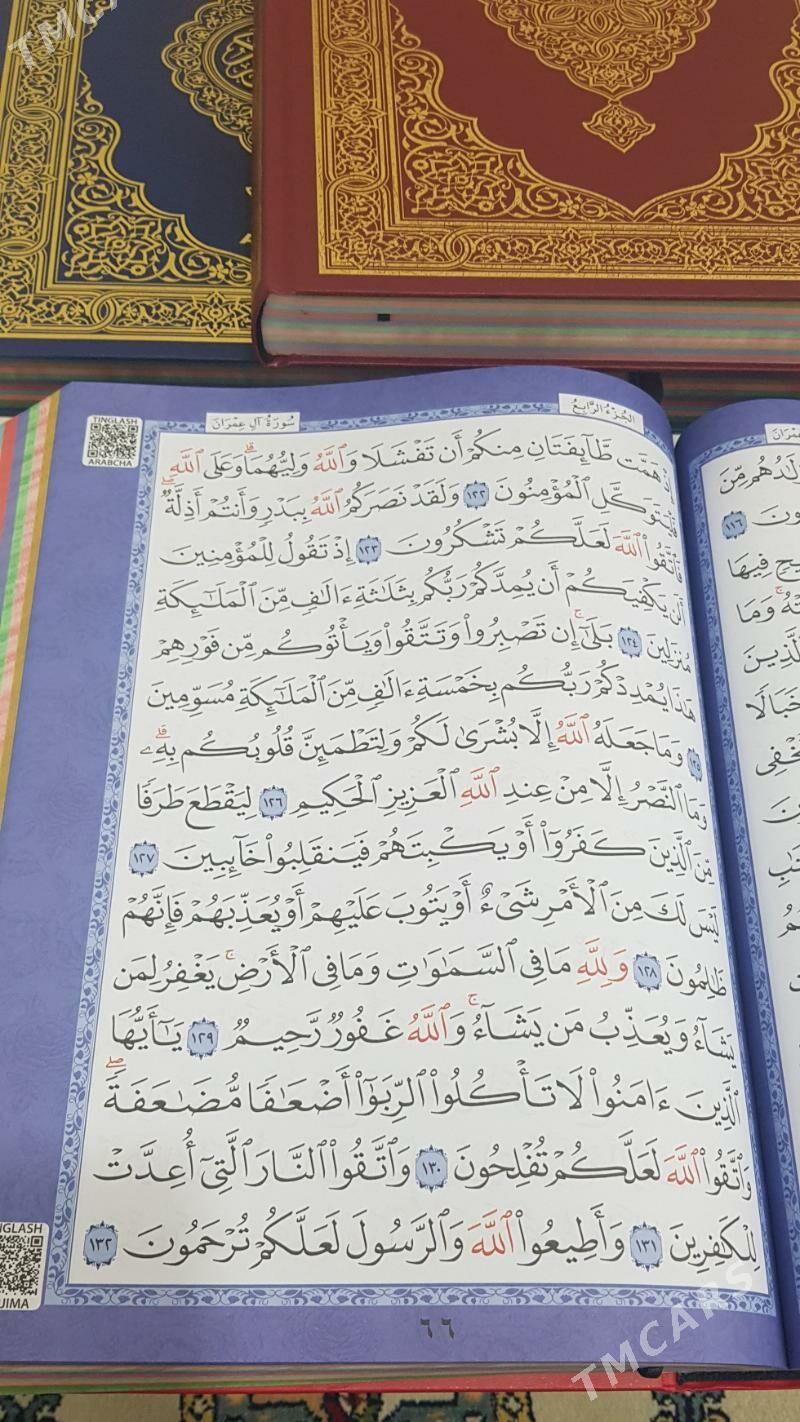 TMCARS
TINGLASH
ARABCHA
سُورَةُ آلِ عِمْرَانَ
الجُزْءُ الرَّابِعُ
إِذْ هَمَّت طَّآئِفَتَانِ مِنكُمْ أَن تَفْشَلَا وَٱللَّهُ وَلِيُّهُمَاۗ وَعَلَى ٱللَّهِ
فَلْيَتَوَكَّلِ ٱلْمُؤْمِنُونَ ١٢٢ وَلَقَدْ نَصَرَكُمُ ٱللَّهُ بِبَدْرٍ وَأَنتُمْ أَذِلَّةٌۖ
فَٱتَّقُوا۟ ٱللَّهَ لَعَلَّكُمْ تَشْكُرُونَ ١٢٣ إِذْ تَقُولُ لِلْمُؤْمِنِينَ
أَلَن يَكْفِيَكُمْ أَن يُمِدَّكُمْ رَبُّكُم بِثَلَٰثَةِ ءَالَٰفٍ مِّنَ ٱلْمَلَٰٓئِكَةِ
مُنزَلِينَ ١٢٤ بَلَىٰٓۚ إِن تَصْبِرُوا۟ وَتَتَّقُوا۟ وَيَأْتُوكُم مِّن فَوْرِهِمْ
هَٰذَا يُمْدِدْكُمْ رَبُّكُم بِخَمْسَةِ ءَالَٰفٍ مِّنَ ٱلْمَلَٰٓئِكَةِ مُسَوِّمِينَ
١٢٥ وَمَا جَعَلَهُ ٱللَّهُ إِلَّا بُشْرَىٰ لَكُمْ وَلِتَطْمَئِنَّ قُلُوبُكُم بِهِۦۗ
وَمَا ٱلنَّصْرُ إِلَّا مِنْ عِندِ ٱللَّهِ ٱلْعَزِيزِ ٱلْحَكِيمِ ١٢٦ لِيَقْطَعَ طَرَفًا
مِّنَ ٱلَّذِينَ كَفَرُوٓا۟ أَوْ يَكْبِتَهُمْ فَيَنقَلِبُوا۟ خَآئِبِينَ ١٢٧
لَيْسَ لَكَ مِنَ ٱلْأَمْرِ شَىْءٌ أَوْ يَتُوبَ عَلَيْهِمْ أَوْ يُعَذِّبَهُمْ فَإِنَّهُمْ
ظَٰلِمُونَ ١٢٨ وَلِلَّهِ مَا فِى ٱلسَّمَٰوَٰتِ وَمَا فِى ٱلْأَرْضِۚ يَغْفِرُ لِمَن
يَشَآءُ وَيُعَذِّبُ مَن يَشَآءُۚ وَٱللَّهُ غَفُورٌ رَّحِيمٌ ١٢٩ يَٰٓأَيُّهَا
ٱلَّذِينَ ءَامَنُوا۟ لَا تَأْكُلُوا۟ ٱلرِّبَوٰٓا۟ أَضْعَٰفًا مُّضَٰعَفَةًۖ
وَٱتَّقُوا۟ ٱللَّهَ لَعَلَّكُمْ تُفْلِحُونَ ١٣٠ وَٱتَّقُوا۟ ٱلنَّارَ ٱلَّتِىٓ أُعِدَّتْ
لِلْكَٰفِرِينَ ١٣١ وَأَطِيعُوا۟ ٱللَّهَ وَٱلرَّسُولَ لَعَلَّكُمْ تُرْحَمُونَ ١٣٢
٦٦
١١٦
فِيهَا
وَمَا
TMCARS